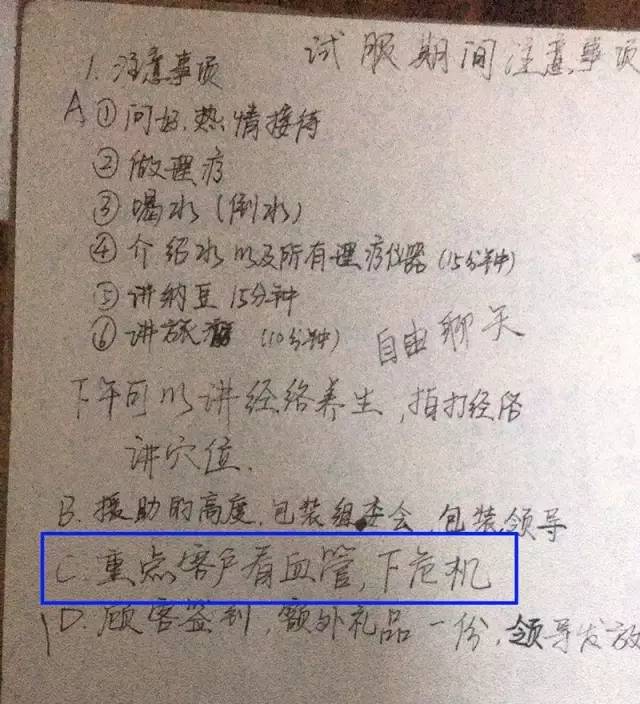 试服期间注意事项
1. 注意事项
A ① 问好,热情接待
② 做理疗
③ 喝水(倒水)
④ 介绍水以及所有理疗仪器(15分钟)
⑤ 讲纳豆15分钟
⑥ 讲旅 (10分钟) 自由聊天
下午可以讲经络养生,拍打经络
讲穴位.
B. 援助的高度,包装组委会,包装领导
C. 重点客户看血管,下危机
D. 顾客签到,额外礼品一份,领导发放